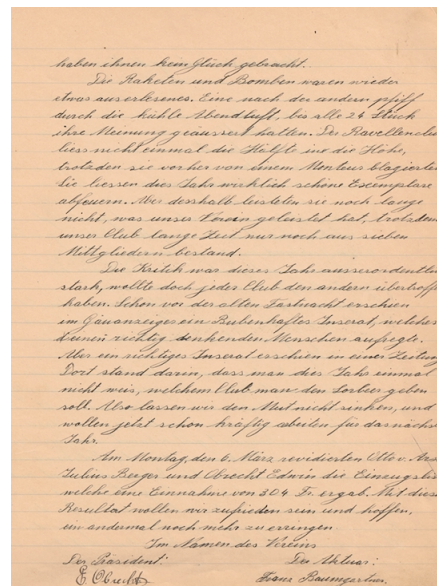 haben ihnen kein Glück gebracht.
Die Raketen und Bomben waren wieder
etwas auserlesenes. Eine nach der andern pfiff
durch die kühle Abendluft, bis alle 24 Stück
ihre Meinung geäussert hatten. Der
liess nicht einmal die Hälfte in die Höhe,
trotzdem sie vorher von einem Monteur blagierten
Sie liessen dies Jahr wirklich schöne Exemplare
abfeuern. Aber desshalb leisteten sie noch lange
nicht, was unser Verein geleistet hat, trotzdem
unser Club lange Zeit nur noch aus sieben
Mittgliedern bestand.
Die Kritik war dieses Jahr ausserordentlich
stark, wollte doch jeder Club den andern übertroffen
haben. Schon vor der alten Fastnacht erschien
im Gäuanzeiger ein Bubenhaftes Inserat, welches
einen richtig denkenden Menschen aufregte.
Aber ein richtiges Inserat erschien in einer Zeitung
Dort stand darin, dass man dies Jahr einmal
nicht weis, welchem Club man den Lorbeer geben
soll. Also lassen wir den Mut nicht sinken, und
wollen jetzt schon kräftig arbeiten für das nächste
Jahr.
Am Montag, den 6. März, revidierten Otto v. Arx
Julius Berger und Obrecht Edwin die Einzugsliste
welche eine Einnahme von 304 Fr. ergab. Mit diesem
Resultat wollen wir zufrieden sein und hoffen,
ein andermal noch mehr zu erringen.
Im Namen des Vereins
Der Präsident: Der Aktuar:
E. Obrecht Franz Baumgartner.